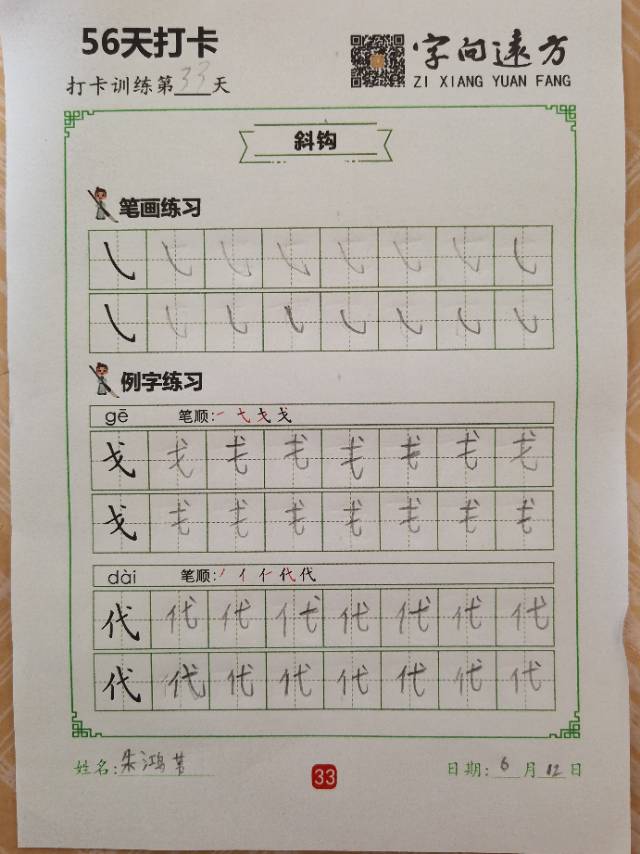 56天打卡
打卡训练第33天
字向远方
ZI XIANG YUAN FANG
斜钩
笔画练习
㇂ ㇂ ㇂ ㇂ ㇂ ㇂ ㇂ ㇂
㇂ ㇂ ㇂ ㇂ ㇂ ㇂ ㇂ ㇂
例字练习
gē 笔顺:一 弋 戈 戈
戈 戈 戈 戈 戈 戈 戈 戈
戈 戈 戈 戈 戈 戈 戈 戈
dài 笔顺:丿 亻 仁 代 代
代 代 代 代 代 代 代 代
代 代 代 代 代 代 代 代
姓名:朱鸿
33
日期:6月12日